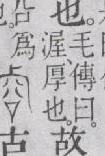 也。
毛傳曰。
渥厚也。
故
爲
古